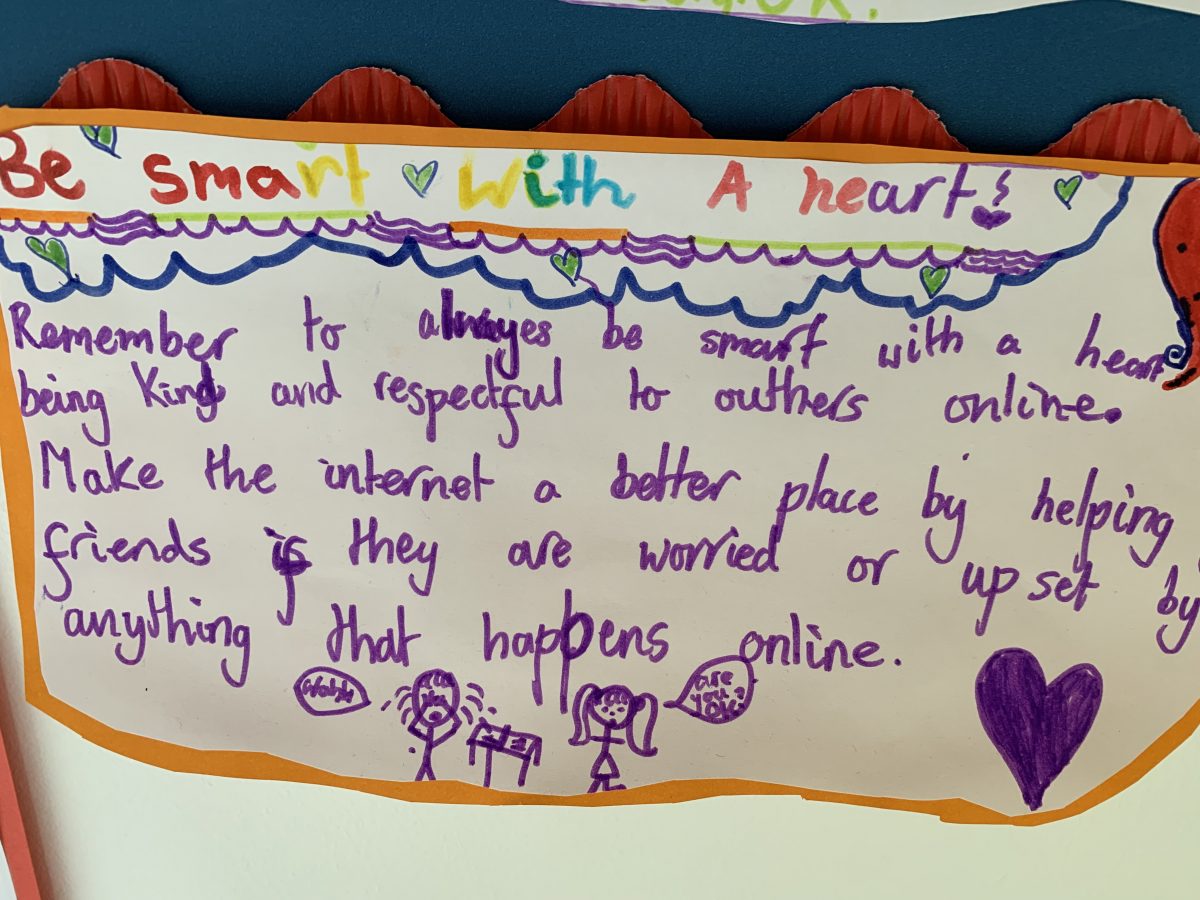 Be smart With A heart!
Remember to always be smart with a heart
being kind and respectful to outhers online.
Make the internet a better place by helping
friends if they are worried or up set by
anything that happens online.
are you ok?